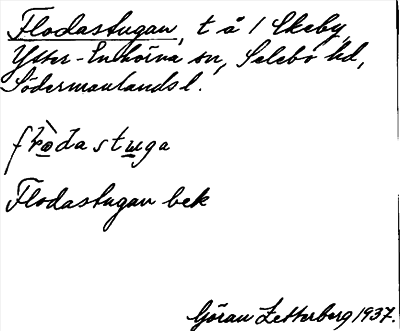 Flodastugan, t å 1 Ekeby,
Ytter-Enhörna sn, Selebo hd,
Södermanlands l.
flòdastuga
Flodastugan bek
Göran Zetterberg 1937.